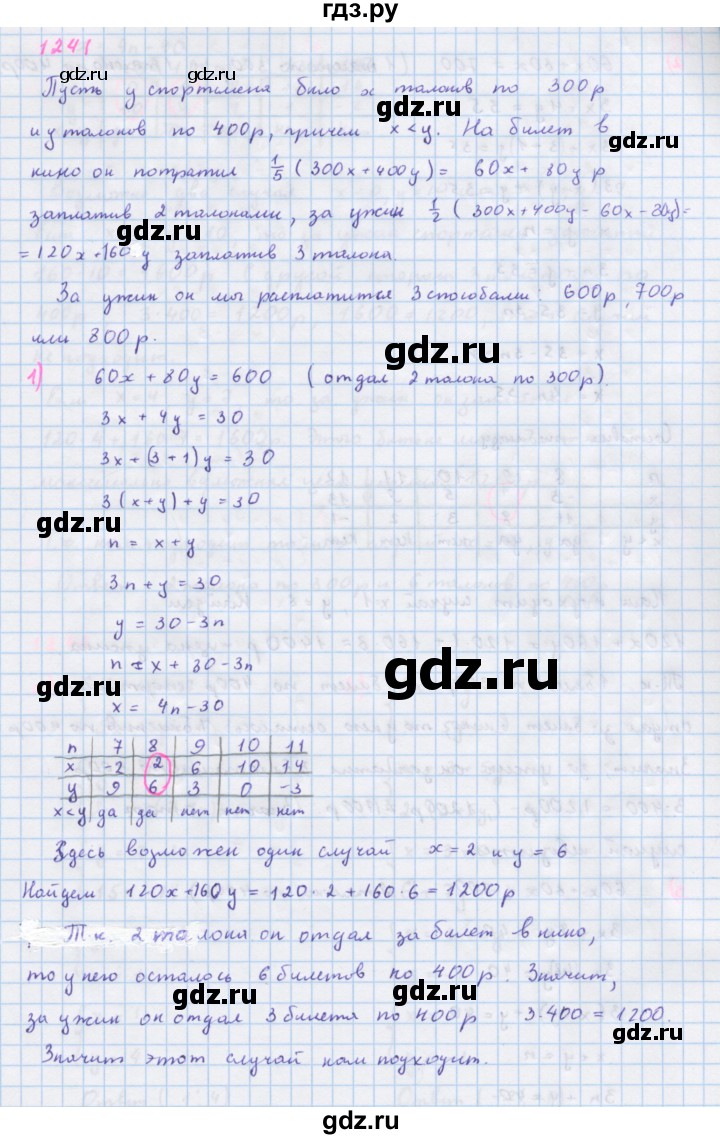 гдз.ру
1241
Пусть у спортсмена было x талонов по 300 р
и y талонов по 400 р, причем x < y. На билет в
кино он потратил 1/5 (300x + 400y) = 60x + 80y р
заплатив 2 талонами, за ужин 1/2 (300x + 400y - 60x - 80y) =
= 120x + 160y заплатив 3 талона.
За ужин он мог расплатится 3 способами: 600 р, 700 р
или 800 р.
1) 60x + 80y = 600 (отдал 2 талона по 300 р).
3x + 4y = 30
3x + (3 + 1) y = 30
3 (x + y) + y = 30
n = x + y
3n + y = 30
y = 30 - 3n
n = x + 30 - 3n
x = 4n - 30
n 7 8 9 10 11
x -2 2 6 10 14
y 9 6 3 0 -3
x < y да да нет нет нет
Здесь возможен один случай x = 2 и y = 6
Найдем 120x + 160y = 120 · 2 + 160 · 6 = 1200 р
Т.к. 2 талона он отдал за билет в кино,
то у него осталось 6 билетов по 400 р. Значит,
за ужин он отдал 3 билета по 400 р 3·400 = 1200.
Значит этот случай нам подходит.
gdz.ru
gdz.ru
gdz.ru
gdz.ru
gdz.ru
gdz.ru
gdz.ru
gdz.ru
gdz.ru
gdz.ru
gdz.ru
gdz.ru
gdz.ru